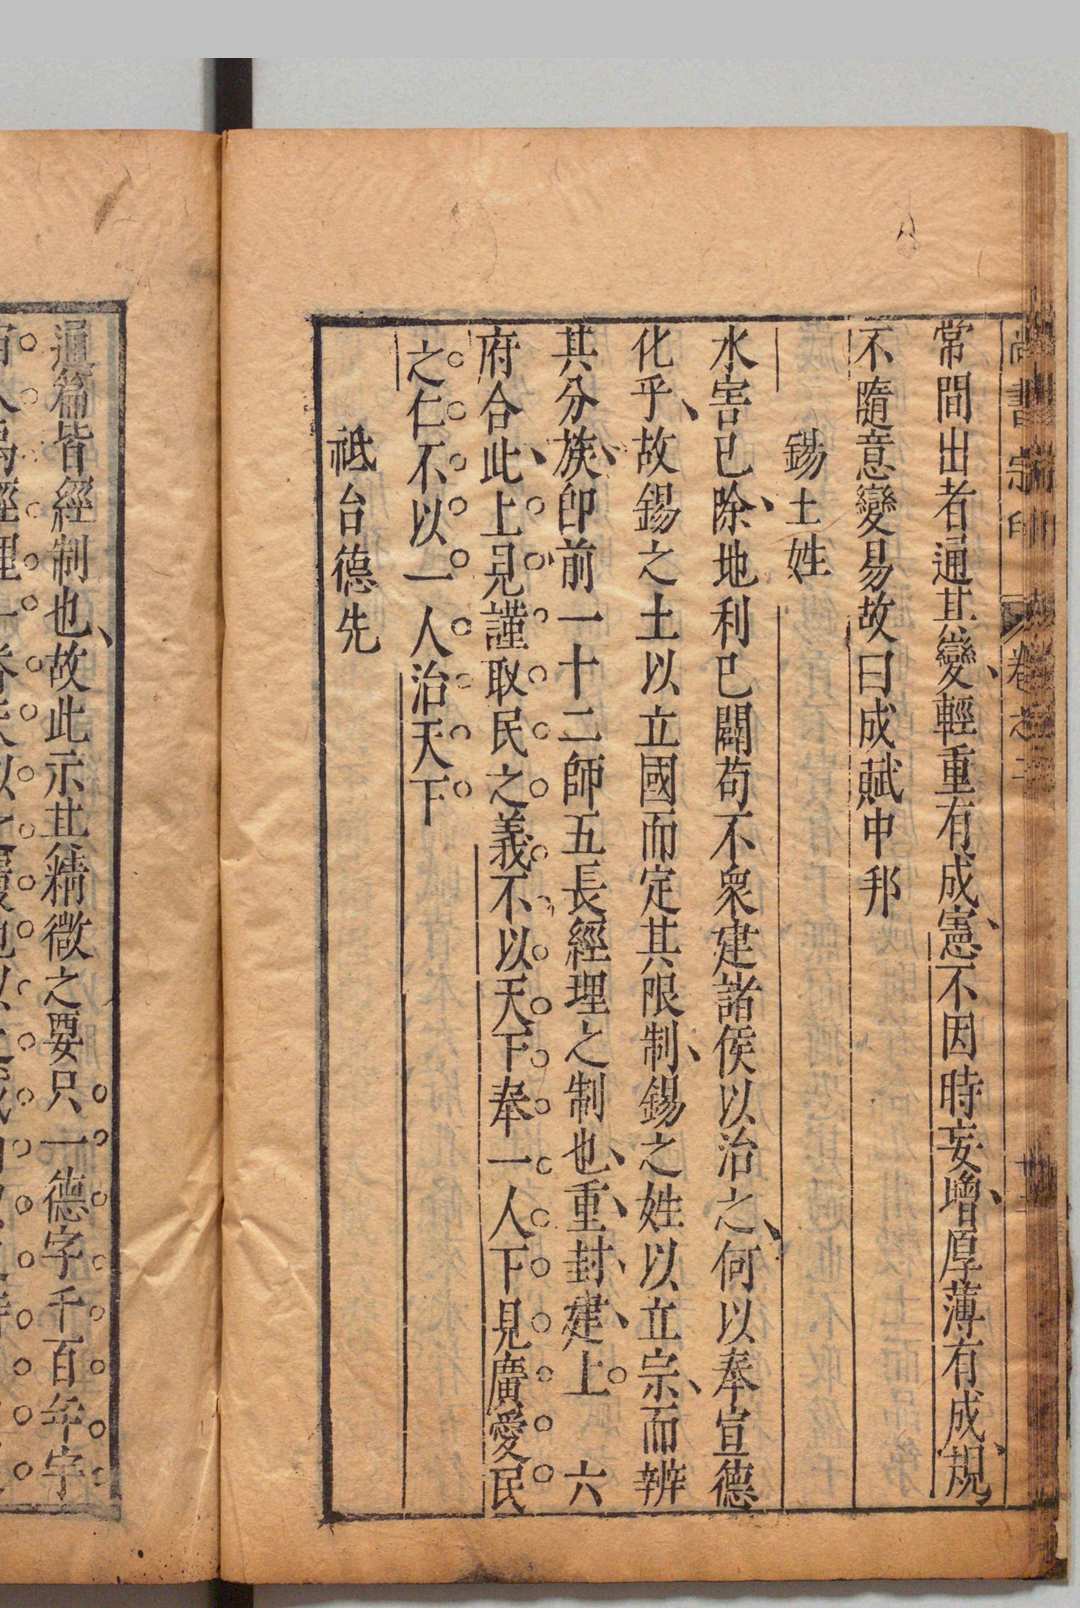 尚書宗印 卷之二
常間出者通其變輕重有成憲不因時妄增厚薄有成規
不隨意變易故曰成賦中邦
錫土姓
水害已除地利已闢苟不衆建諸侯以治之何以奉宣德
化乎故錫之土以立國而定其限制錫之姓以立宗而辨
其分族卽前一十二師五長經理之制也重封建上 六
府合此上見謹取民之義不以天下奉一人下見廣愛民
之仁不以一人治天下
祗台德先
通篇皆經制也故此示其精微之要只一德字千百年字